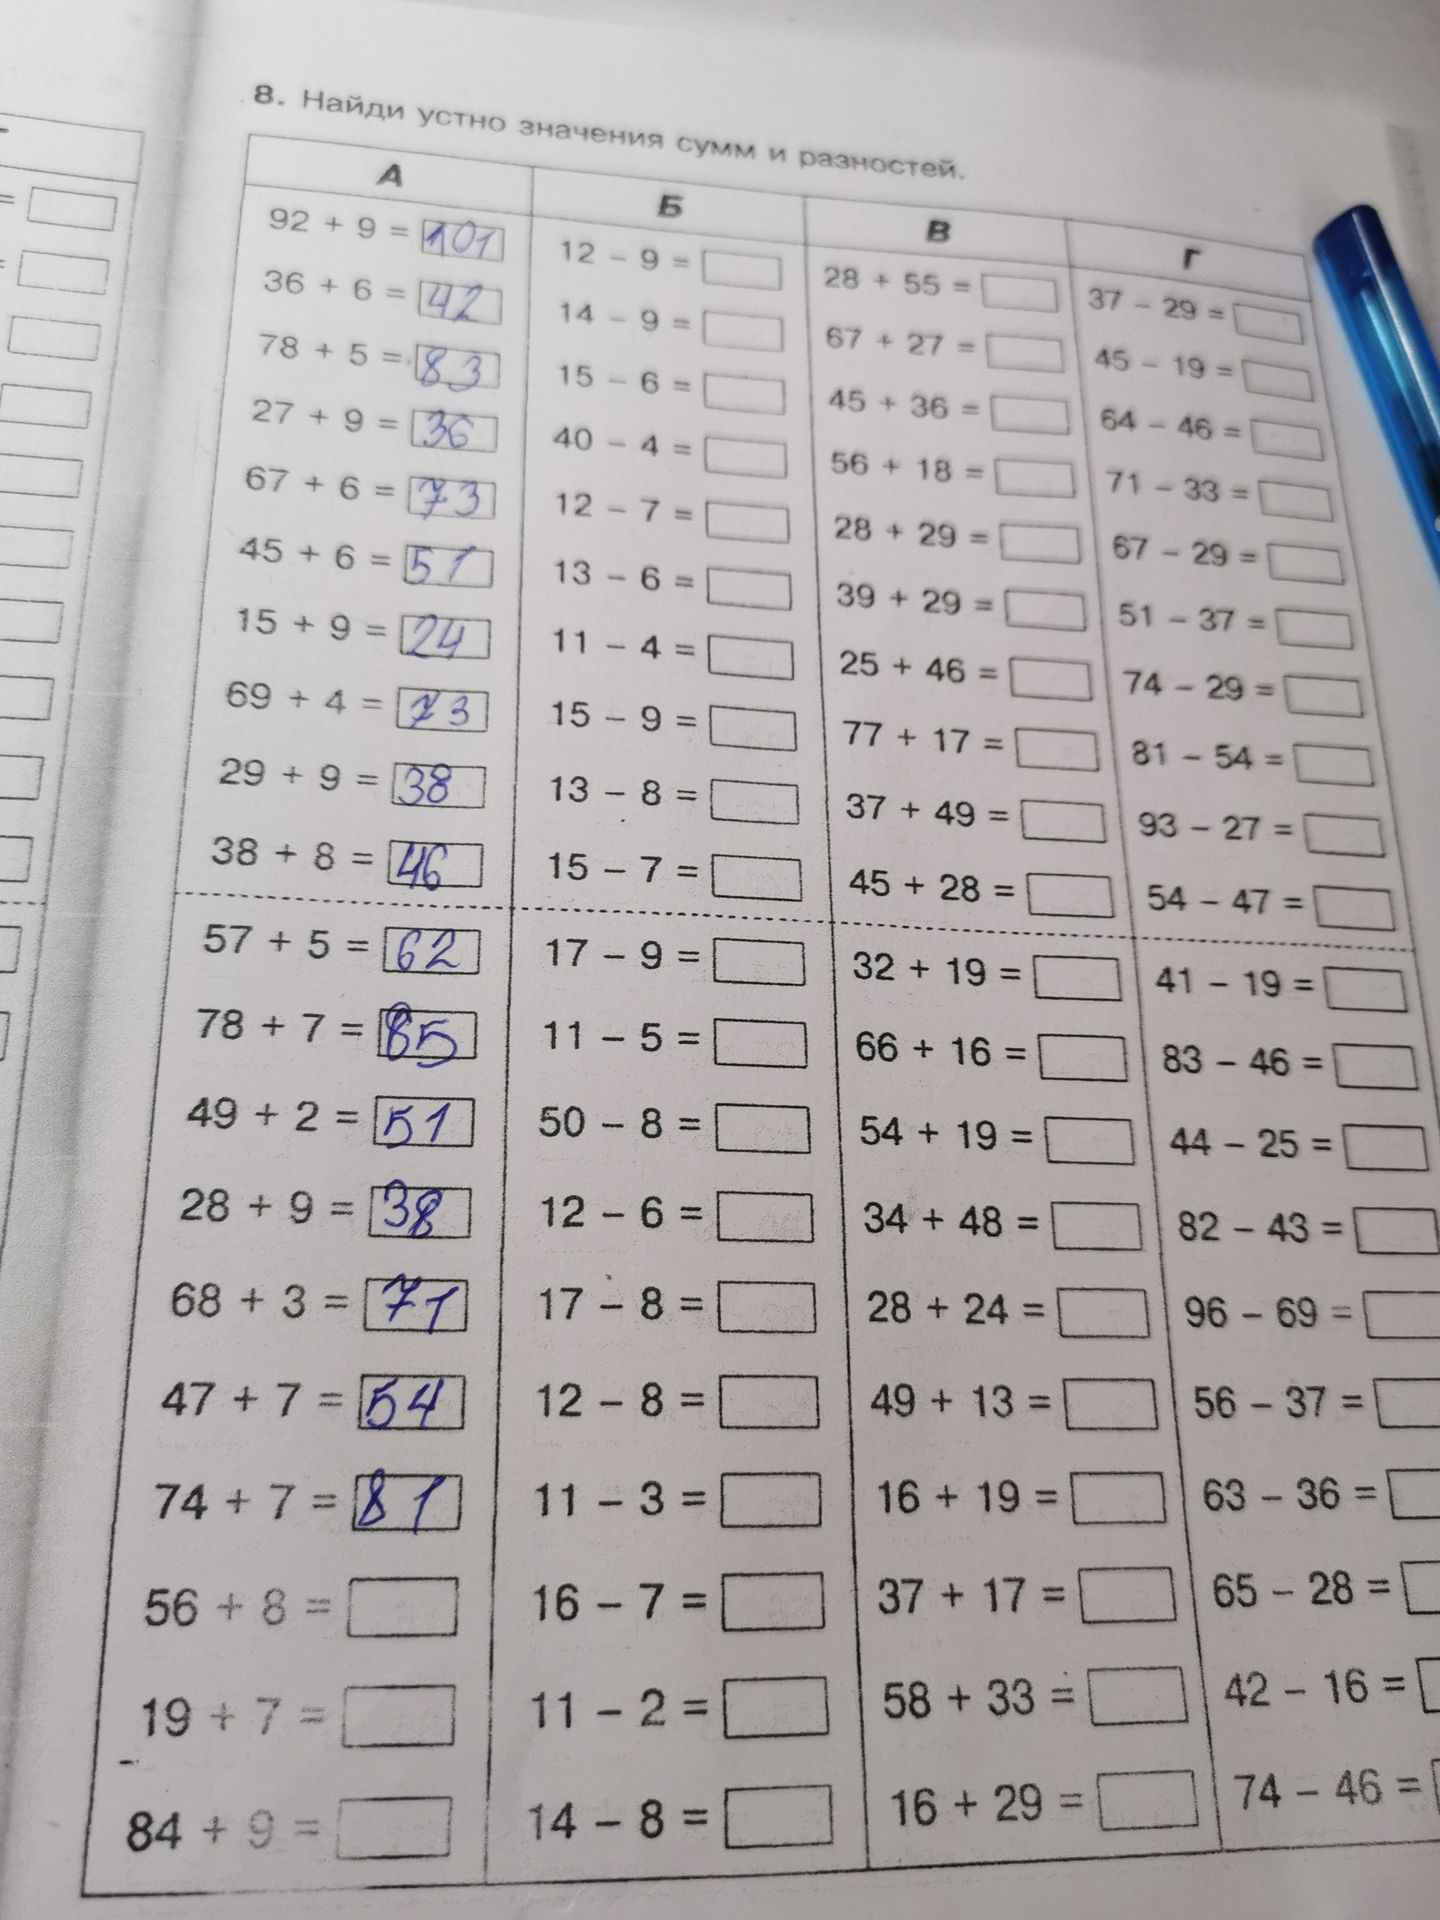 8. Найди устно значения сумм и разностей.
А Б В Г
92 + 9 = 101 12 – 9 = 28 + 55 = 37 – 29 =
36 + 6 = 42 14 – 9 = 67 + 27 = 45 – 19 =
78 + 5 = 83 15 – 6 = 45 + 36 = 64 – 46 =
27 + 9 = 36 40 – 4 = 56 + 18 = 71 – 33 =
67 + 6 = 73 12 – 7 = 28 + 29 = 67 – 29 =
45 + 6 = 51 13 – 6 = 39 + 29 = 51 – 37 =
15 + 9 = 24 11 – 4 = 25 + 46 = 74 – 29 =
69 + 4 = 73 15 – 9 = 77 + 17 = 81 – 54 =
29 + 9 = 38 13 – 8 = 37 + 49 = 93 – 27 =
38 + 8 = 46 15 – 7 = 45 + 28 = 54 – 47 =
57 + 5 = 62 17 – 9 = 32 + 19 = 41 – 19 =
78 + 7 = 85 11 – 5 = 66 + 16 = 83 – 46 =
49 + 2 = 51 50 – 8 = 54 + 19 = 44 – 25 =
28 + 9 = 38 12 – 6 = 34 + 48 = 82 – 43 =
68 + 3 = 71 17 – 8 = 28 + 24 = 96 – 69 =
47 + 7 = 54 12 – 8 = 49 + 13 = 56 – 37 =
74 + 7 = 81 11 – 3 = 16 + 19 = 63 – 36 =
56 + 8 = 16 – 7 = 37 + 17 = 65 – 28 =
19 + 7 = 11 – 2 = 58 + 33 = 42 – 16 =
84 + 9 = 14 – 8 = 16 + 29 = 74 – 46 =